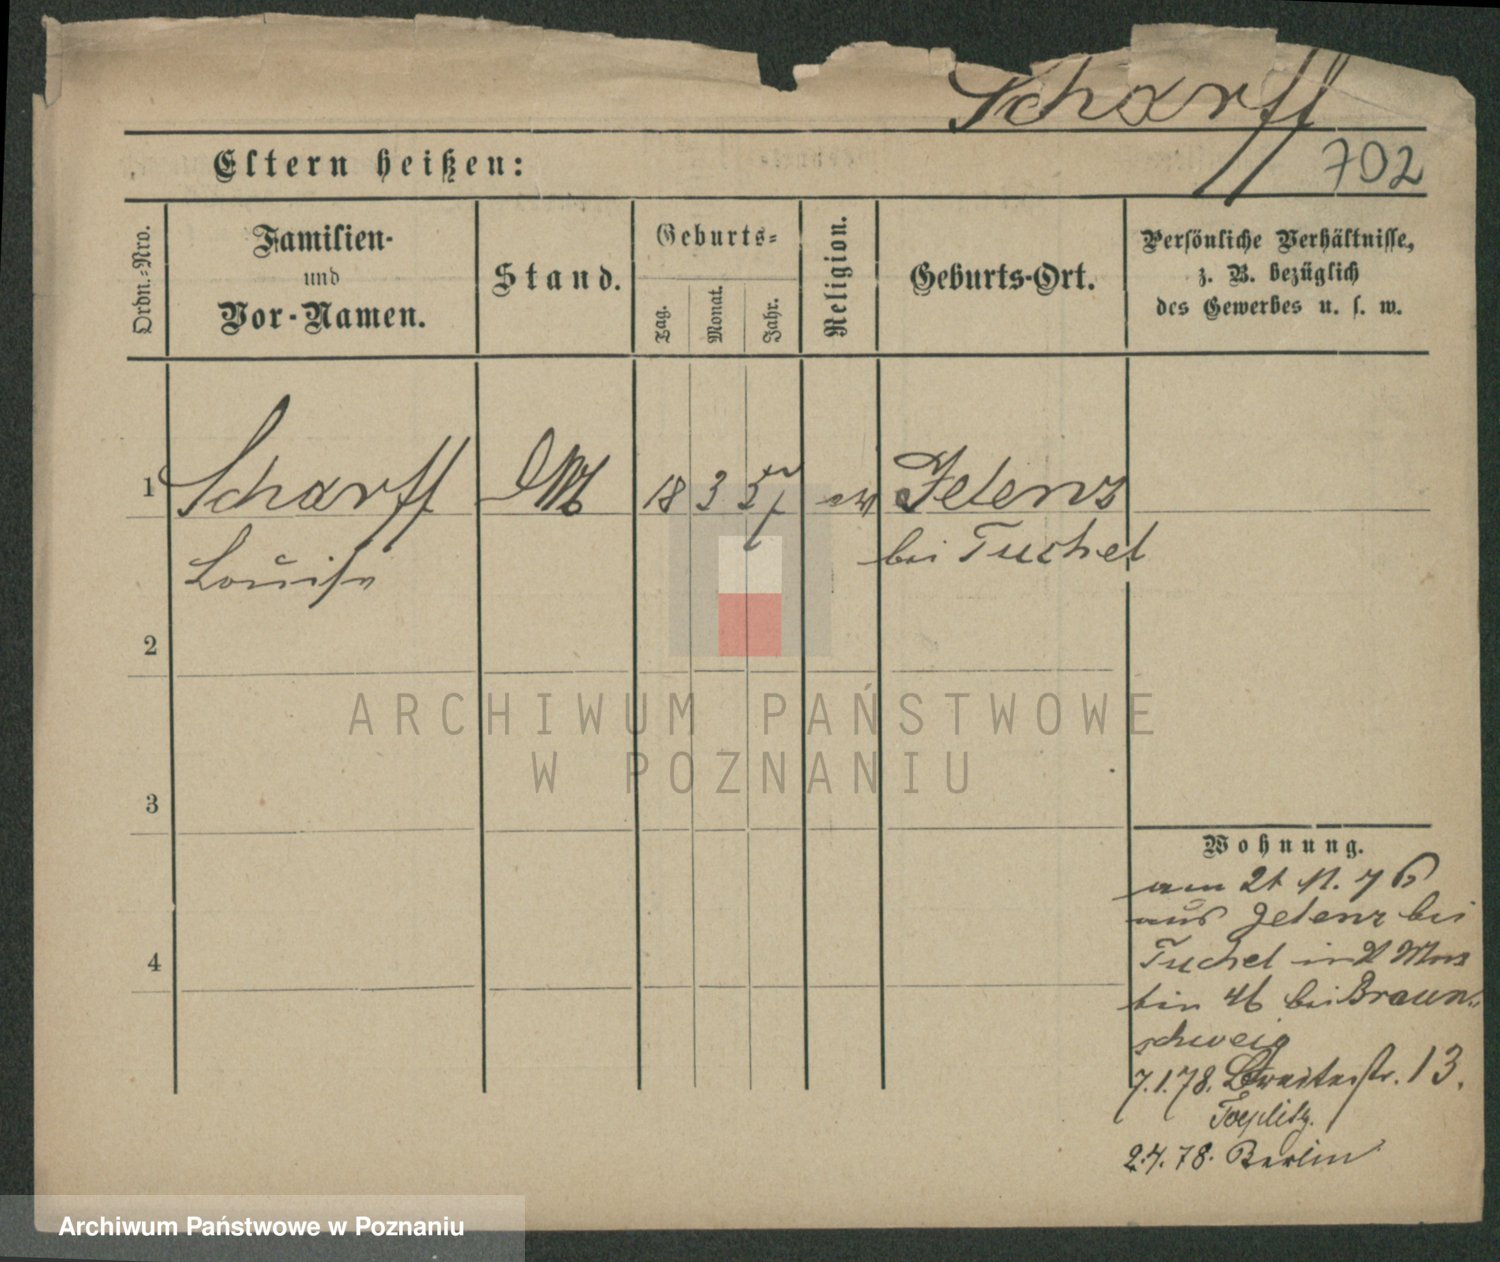 Scharff
702
Eltern heißen:
Ordn.-Nro.
Familien-
und
Vor-Namen.
Stand.
Geburts-
Tag.
Monat.
Jahr.
Religion.
Geburts-Ort.
Persönliche Verhältnisse,
z. B. bezüglich
des Gewerbes u. s. w.
1 Scharff 18 3 57 ev Jelenz
Louise bei Tuchel
2
3
4
ARCHIWUM PAŃSTWOWE
W POZNANIU
Wohnung.
am 21 11. 76
aus Jelenz bei
Tuchel in
bei Braun-
schweig
7.1.78. Breitestr. 13.
Toeplitz.
2.4.78. Berlin
Archiwum Państwowe w Poznaniu